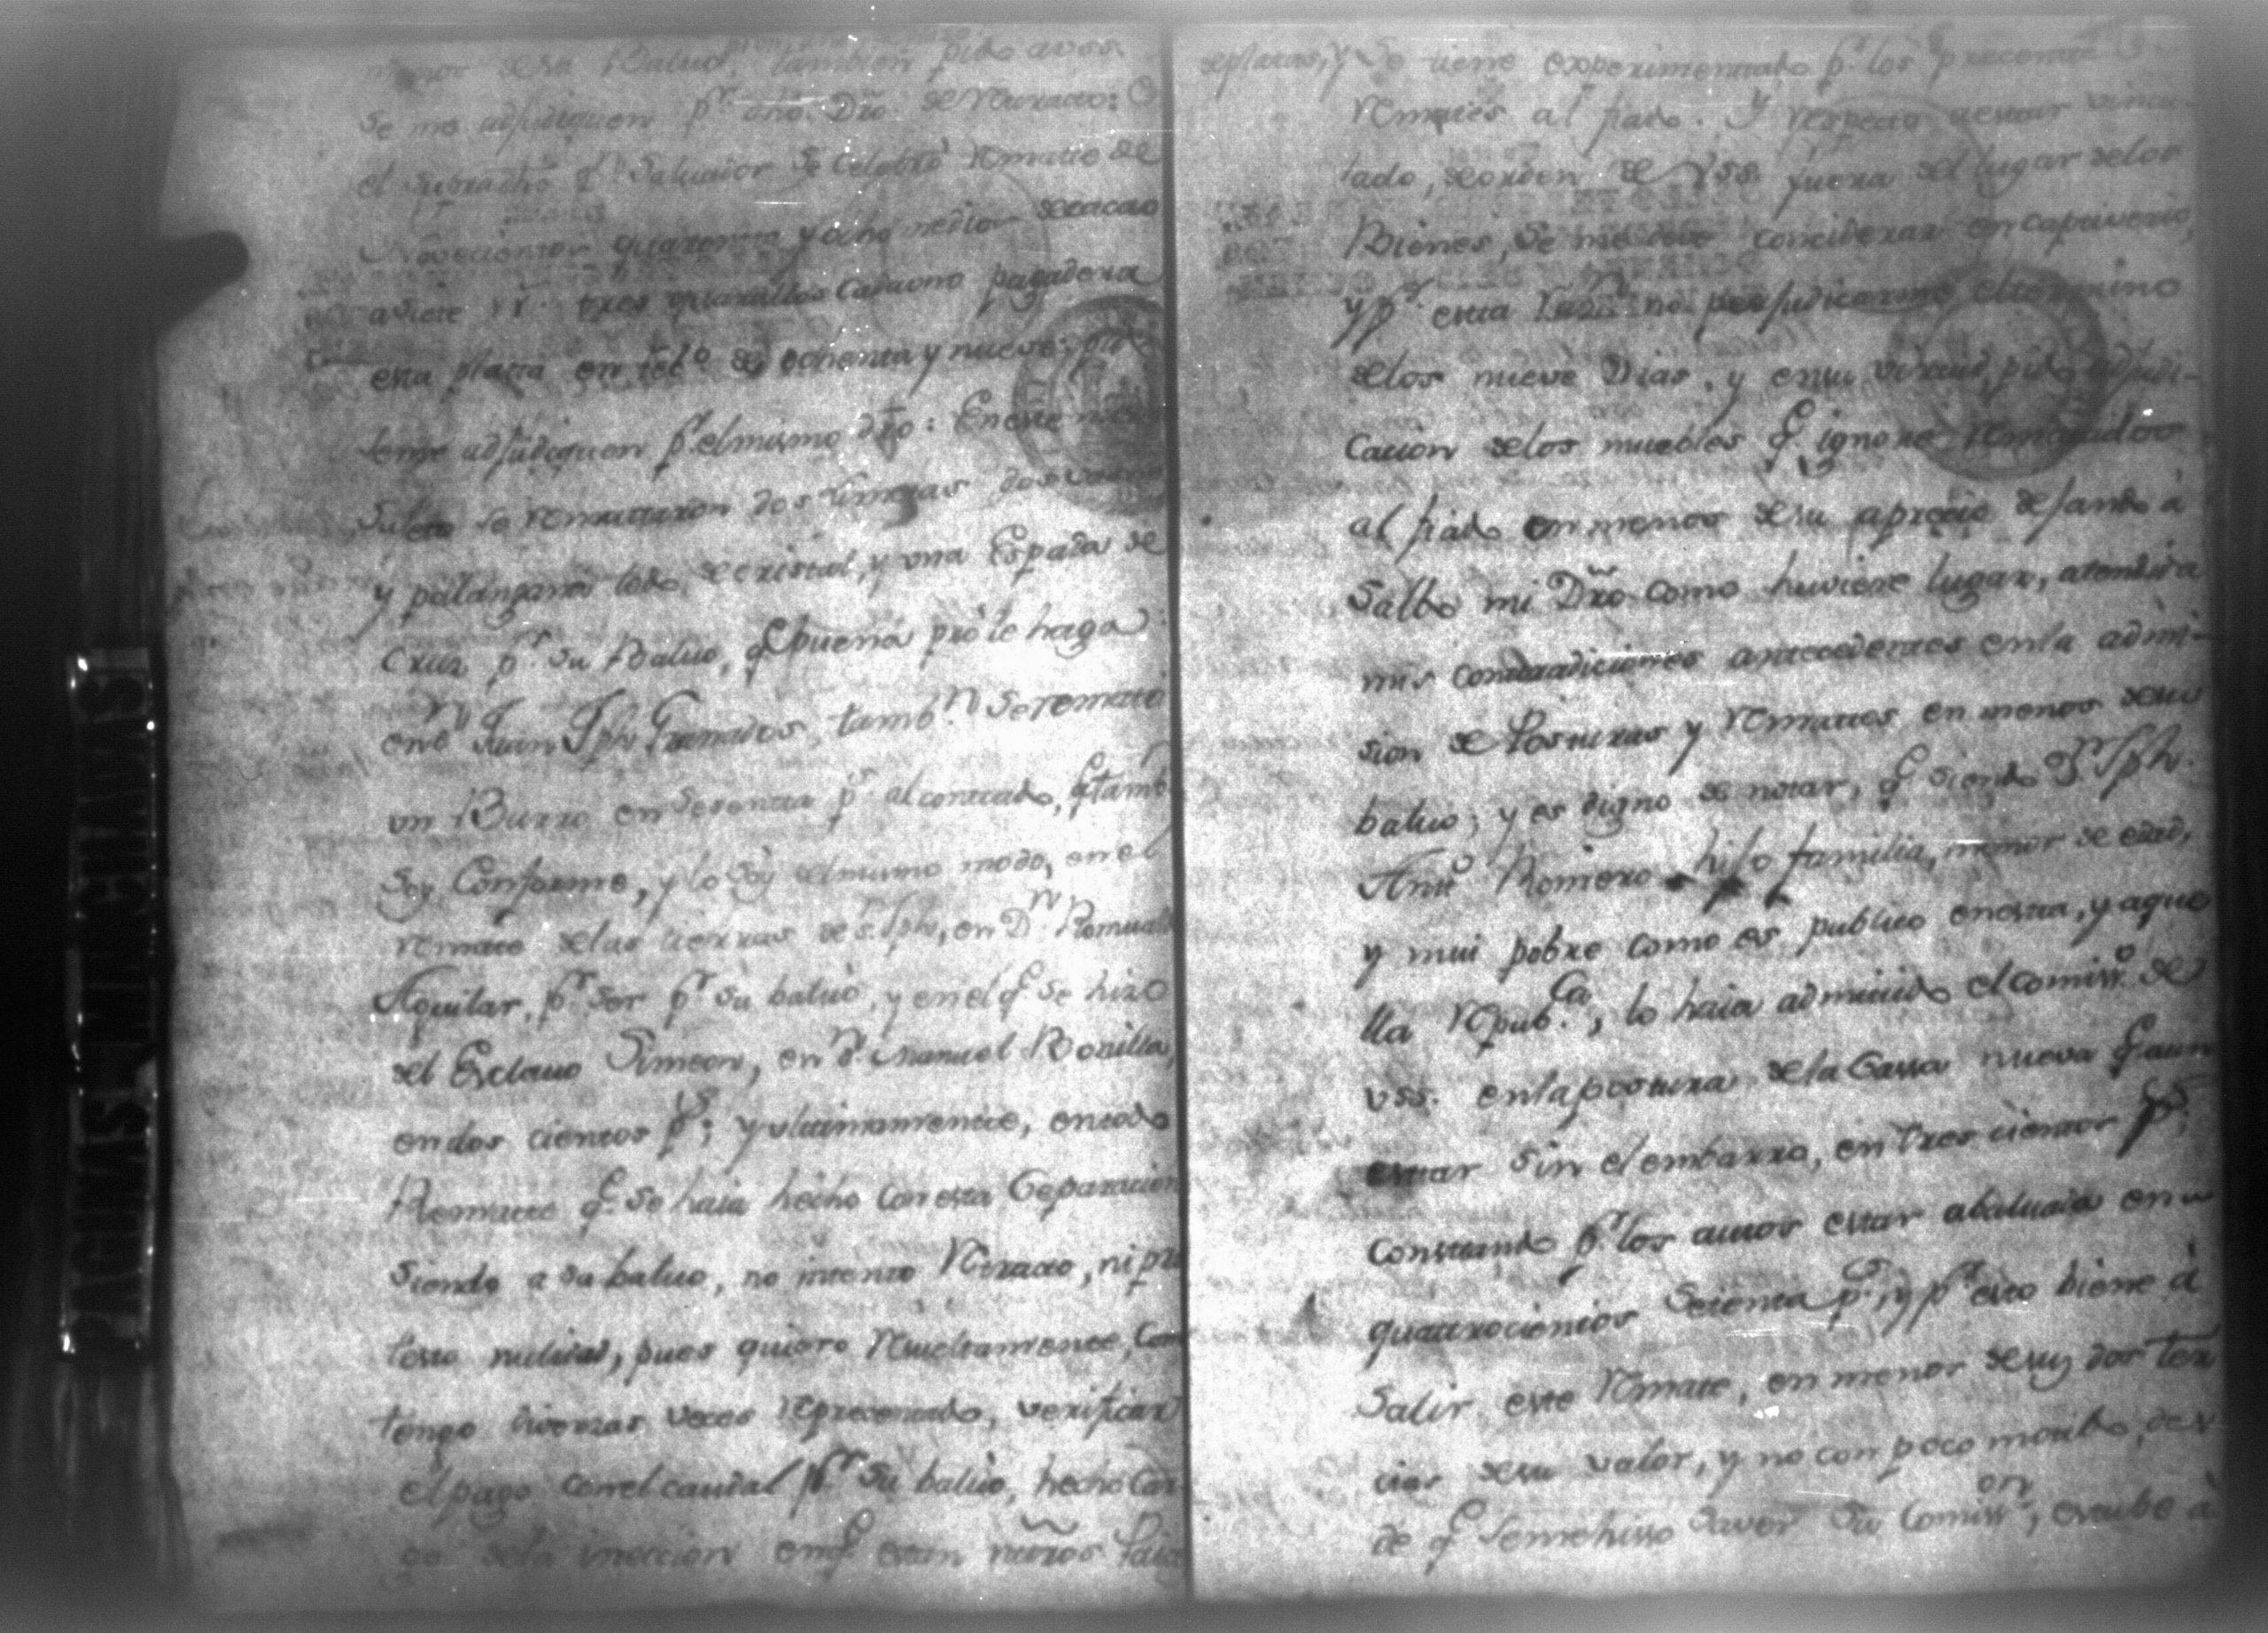 menos de su Baluo, tambien pido avss.
se me adjudiquen pr. dho. Dro. de Retracto:
el supradho. Dn. Salvador se Celebró Remate de
Novecientos quarenta y ocho medios de cacao
a siete rrs. tres quartillos cada uno pagadera
esta plata en de ochenta y nueve; pido
seme adjudiquen pr. el mismo dro: En este mismo
Sujeto se Remataron dos limetas dos vasos
y palangana todo de cristal, y una Espada de
Cruz pr. su Baluo, q. buena pro le haga
en Dn. Juan Jph Granados, tambn. se remató
un Burro en Sesenta ps. al contado, q. tambn.
soy Conforme, y lo soy del mismo modo, en el
Remate de las tierras de S. Jph, en Dn. Romualdo
Aguilar, pr. ser pr. su baluo, y en el q. se hizo
del Esclavo Simeon, en Dn. Manuel Bonilla,
en dos cientos ps; y ultimamente, en todo
Remate q. se haia hecho con esta Ceparacion
siendo a su baluo, no intento Retracto, ni pro
testo nulidad, pues quiero Resueltamente, Como
tengo diversas veces representado, verificar
el pago con el caudal pr. su baluo, hecho Car
go de la incecion en q. estan nros Paiz
de platas, y Se tiene experimentado pr. los
Remates al fiado. Y respecto a estar vincu
lado, de orden de Vss. fuera del lugar delos
Bienes, Se me debe considerar en captiverio,
y pr. esta Razn. no perjudicarme el termino
delos nueve Dias, y en su virtud, pido adjudi-
cacion delos muebles q. ignore Rematados
al fiado en menos de su aprecio dejando á
Salbo mi Dro como huviere lugar, atendida
mis contradiciones antecedentes en la admi-
sion de Posturas y Remates en menos desu
baluo; y es digno de notar, q. siendo Dn. Jph.
Anto. Romero hijo familia, menor de edad,
y mui pobre como es publico en esta, y aque
lla Repubca., lo haia admitido el comisso. de
vss. en la postura de la Cassa nueva q. aun
estar sin el embarro, en tres cientos ps.
Constando pr. los autos estar abaluada en
quatrocientos Setenta ps., y pr. esto biene á
Salir este Remate, en menos de sus dos ter
cias desu valor, y no con poco motibo, des
de q. seme hisso saver Su Comisson., estube á